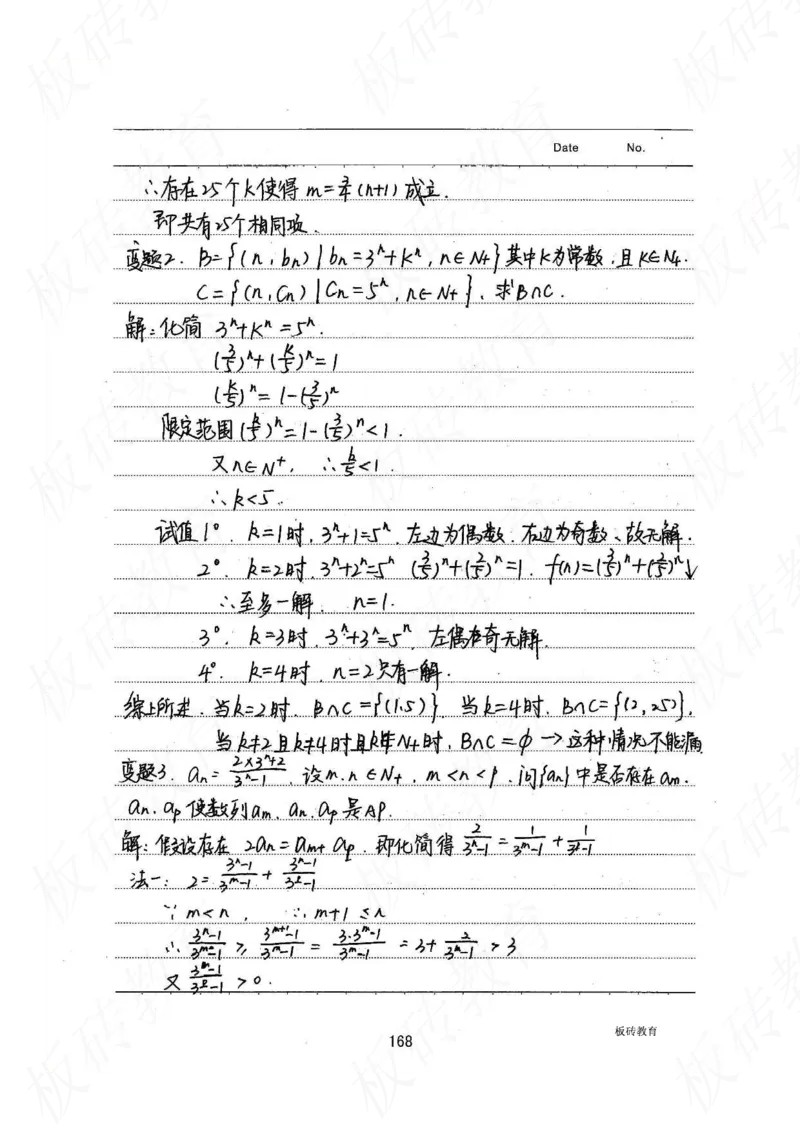 Date No.
∴存在25个k使得 m=\frac{3}{2}(n+1) 成立.
即共有25个相同项.
变题2. B={(n, bn) | bn=3^n+k^n, n∈N+} 其中k为常数, 且 k∈N+.
C={(n, Cn) | Cn=5^n, n∈N+}, 求B∩C.
解:化简 3^n+k^n=5^n.
(3/5)^n+(k/5)^n=1
(k/5)^n=1-(3/5)^n
限定范围 (k/5)^n=1-(3/5)^n<1.
又 n∈N^+, ∴ k/5<1.
∴k<5.
试值 1°. k=1时, 3^n+1=5^n. 左边为偶数、右边为奇数、故无解.
2°. k=2时, 3^n+2^n=5^n (3/5)^n+(2/5)^n=1. f(n)=(3/5)^n+(2/5)^n↓
∴至多一解. n=1.
3°. k=3时, 3^n+3^n=5^n, 左偶右奇无解.
4°. k=4时, n=2只有一解.
综上所述, 当k=2时, B∩C={(1.5)}, 当k=4时, B∩C={(2, 25)},
当k≠2且k≠4时且k∈N+时, B∩C=∅ → 这种情况不能漏
变题3. an=\frac{2×3^n+2}{3^n-1}, 设m.n∈N+, m<n<p, 问{an}中是否存在am.
an.ap使数列am. an. ap是AP.
解:假设存在 2an=am+ap. 即化简得 \frac{2}{3^n-1}=\frac{1}{3^m-1}+\frac{1}{3^p-1}
法一: 2=\frac{3^n-1}{3^m-1}+\frac{3^n-1}{3^p-1}
∵m<n, ∴m+1≤n
∴\frac{3^n-1}{3^m-1}≥\frac{3^{m+1}-1}{3^m-1}=\frac{3·3^m-1}{3^m-1}=3+\frac{2}{3^m-1}>3
又\frac{3^n-1}{3^p-1}>0.
168
板砖教育